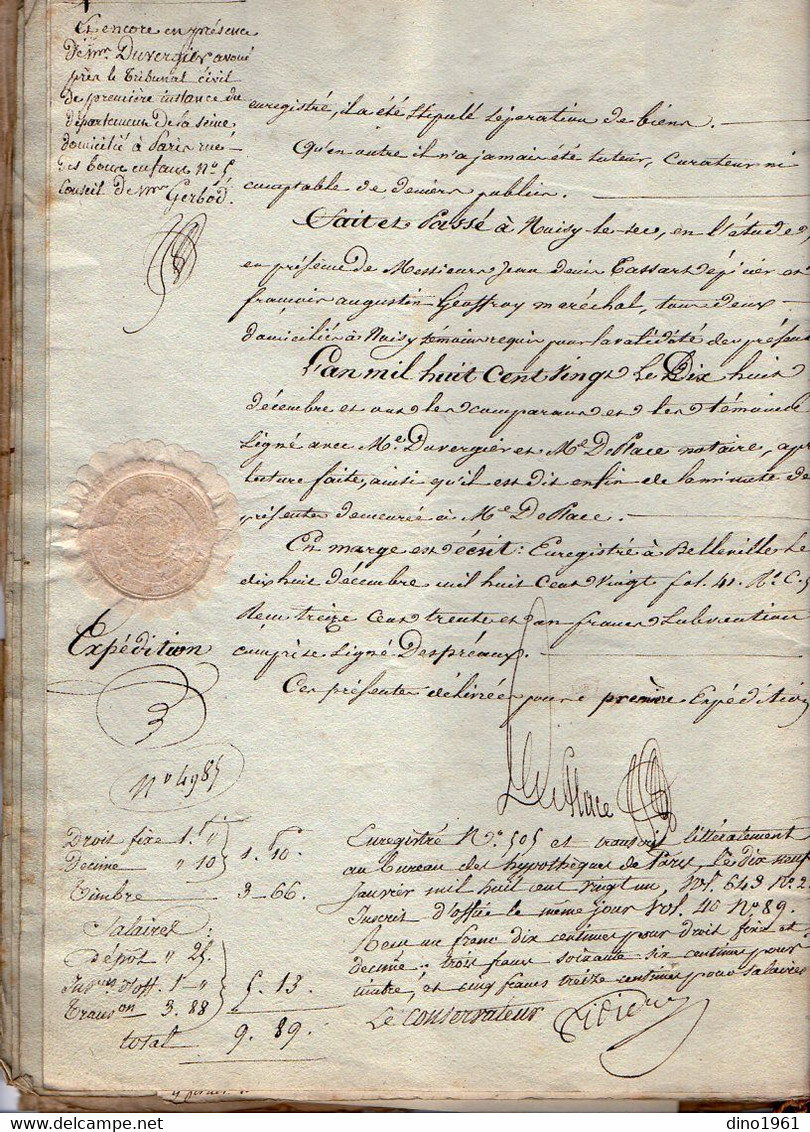 Et encore en présence
de Mr. Duvergier avoué
près le Tribunal civil
de première instance du
département de la seine
domicilié à Paris rue
des bons enfans No. 5,
Conseil de Mr. Gerbod.
enregistré, il a été stipulé séparation de biens.
Qu'en outre il n'a jamais été tuteur, curateur ni
comptable de deniers publics.
Fait et Passé à Noisy-le-sec, en l'étude,
en présence de Messieurs Jean denis Cassart épicier et
françois augustin Geoffroy maréchal, tous deux
domiciliés à Noisy témoins requis pour la validité des présentes
L'an mil huit Cent Vingt Le Dix huit
décembre et ont les comparans et les témoins
signé avec Me. Duvergier et Me. DePlace notaire, apr
lecture faite, ainsi qu'il est dit enfin de la minute des
présentes demeurée à Me. DePlace.
En marge est écrit : Enregistré à Belleville le
dix huit décembre mil huit Cent vingt fol. 41. Ro. C. 5
Reçu treize Cent trente et un francs subvention
comprise signé Despréaux.
Expédition
Ces présentes délivrées pour première Expédition
3
No 4985
DePlace
Droit fixe 1. "
Décime " 10 } 1. 10.
Timbre 3-66.
Salaires :
Dépôt " 25.
d'off. 1-"
Transon 3.88 } 5. 13.
total 9. 89.
Enregistré No. 505 et transcrit littéralement
au Bureau des hypothèques de Paris, le dix neuf
Janvier mil huit cent vingt un, Vol. 643 No. 2
Inscrit d'office le même jour Vol. 40 No. 89.
Reçu un franc dix centimes pour droit fixe et
decime ; trois francs soixante six centimes pour
timbre, et cinq francs treize centimes pour salaires
Le Conservateur
dino1961